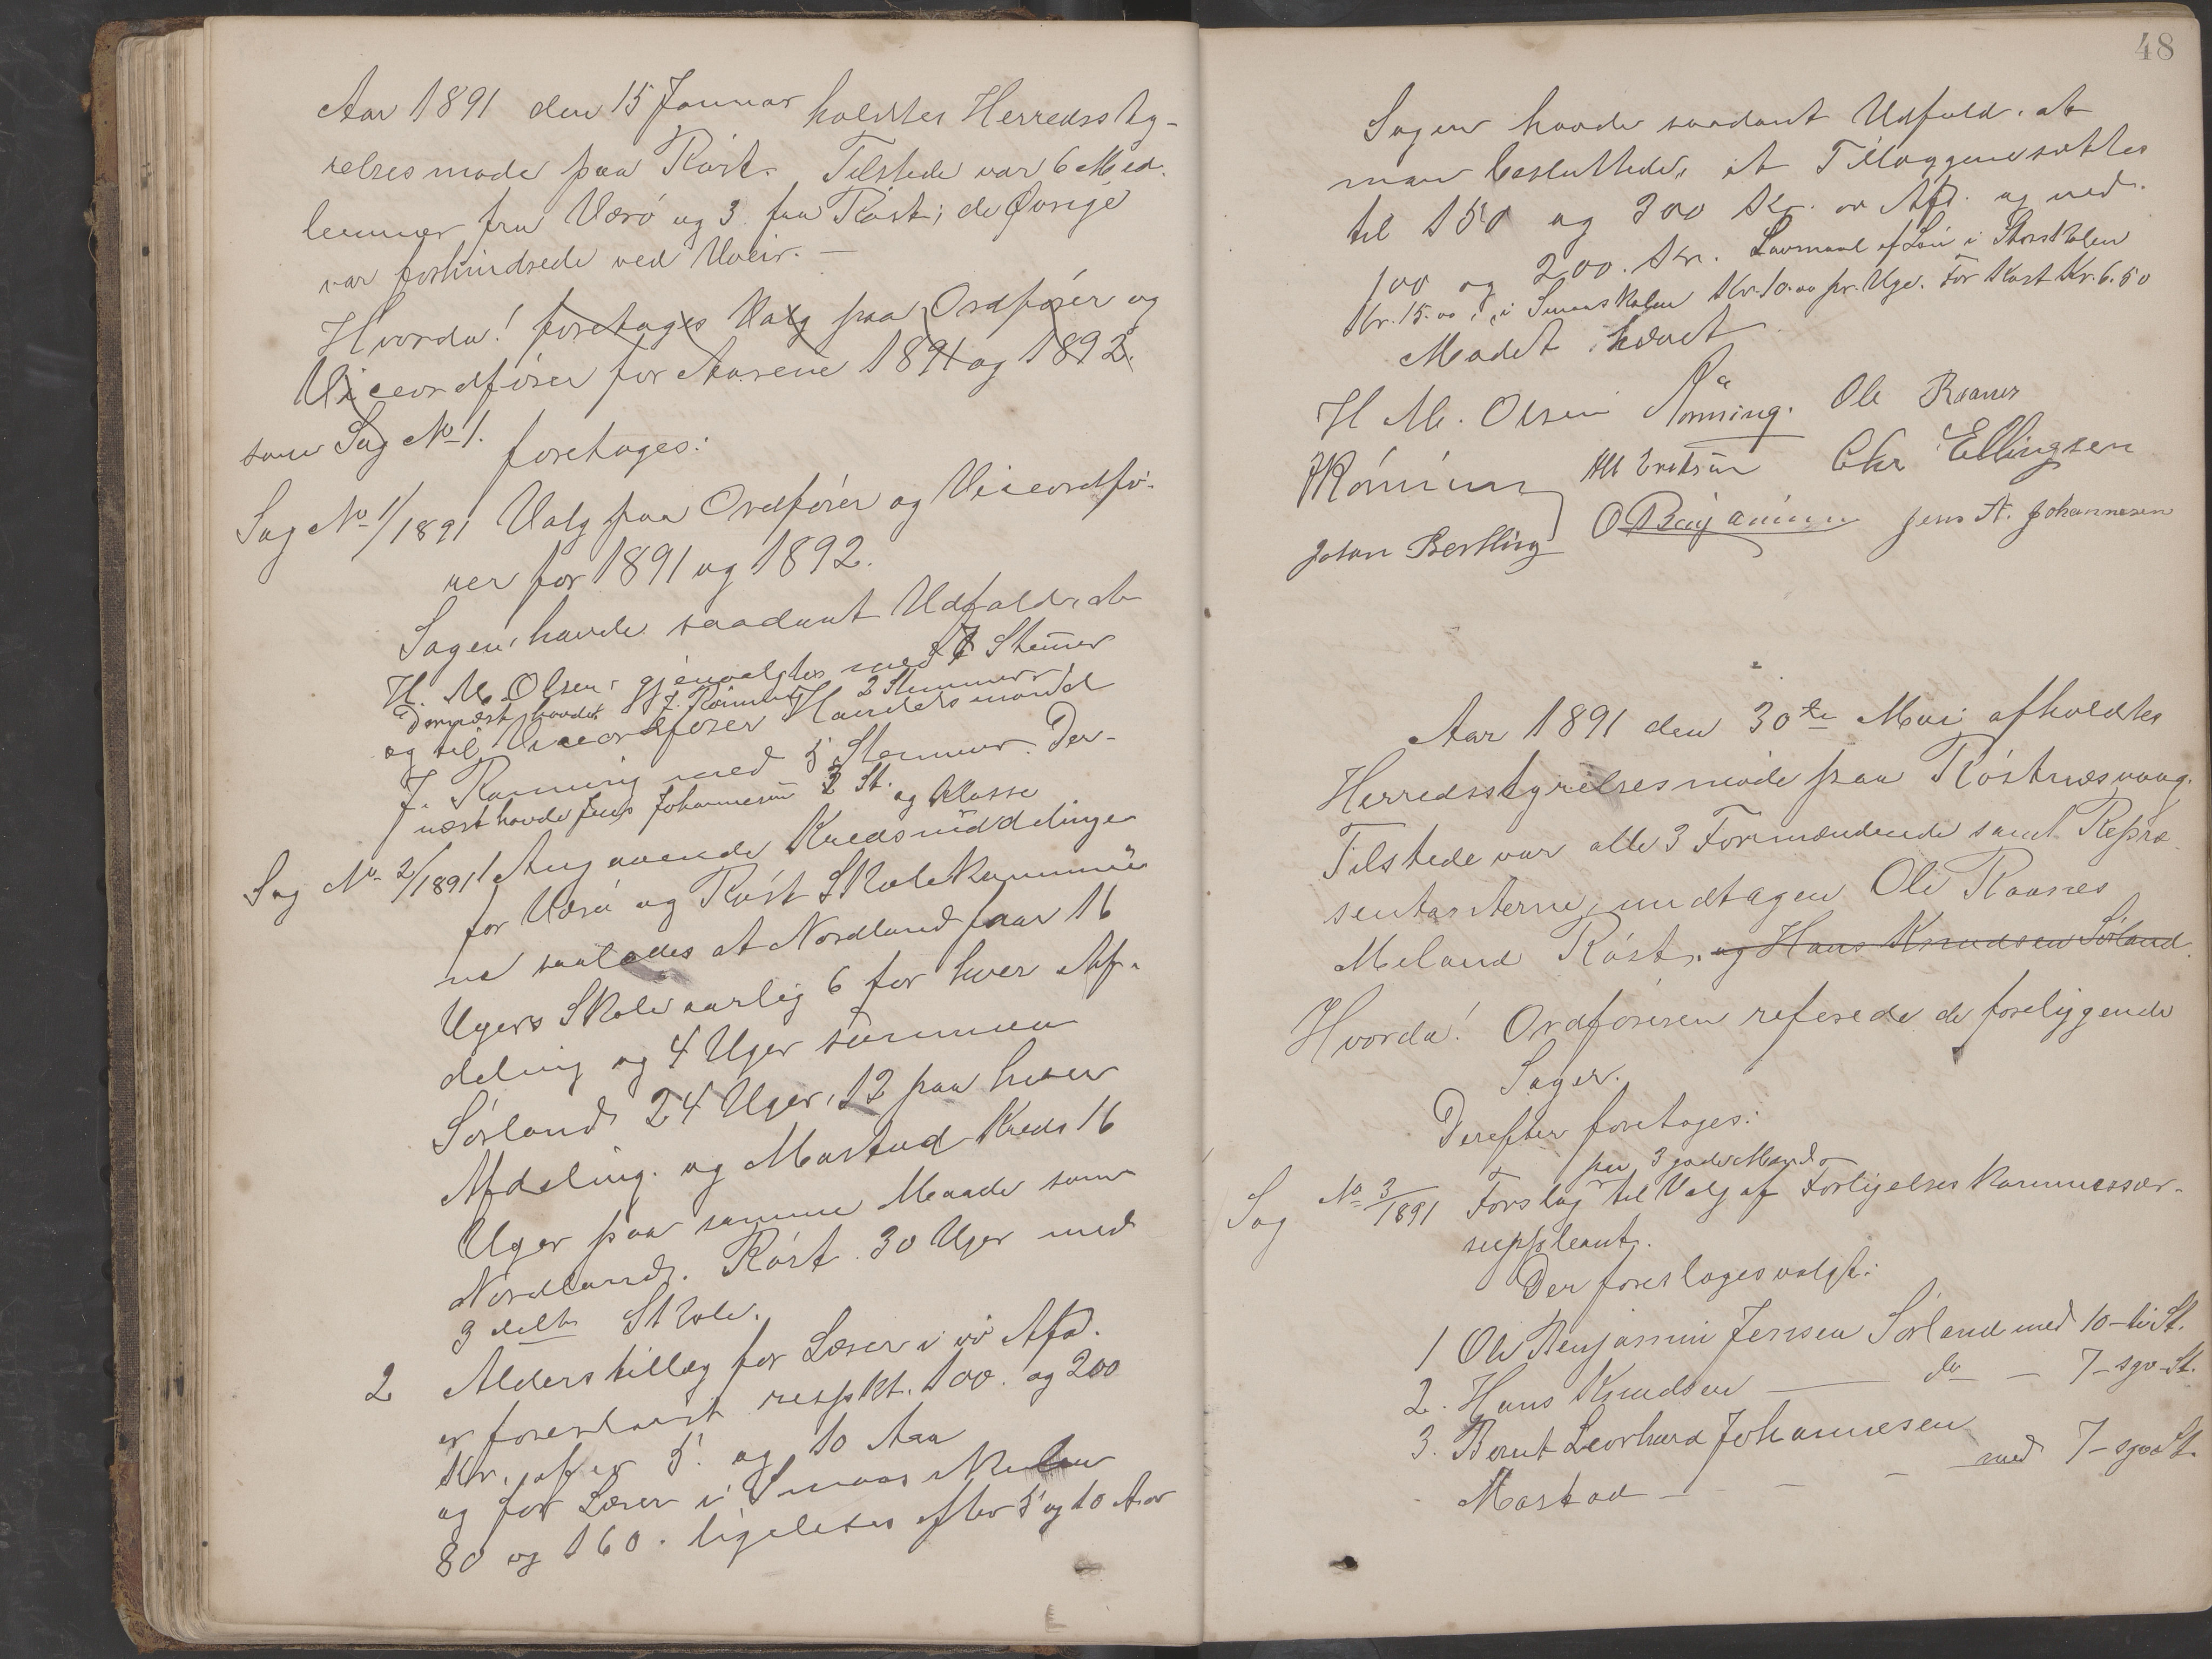 Aar 1891 den 15 Januar holdtes Herredssty-
relsesmøde paa Røst. Tilstede var 6 Med-
lemmer fra Værø og 3 fra Røst; de Øvrige
var forhindrede ved Uveir. –
Hvorda! foretages Valg paa Ordfører og
Viceordfører for Aarene 1891 og 1892.
som Sag No 1. foretages:
Sag No 1/1891 Valg paa Ordfører og Viceordfø-
rer for 1891 og 1892.
Sagen havde saadant Udfald, at
H. M. Olsen gjenvalgtes med 7 Stemer
Dernæst havde J. Rønning 2 Stemmer
og til Viceordfører Handelsmand
J. Rønning med 5 Stemmer. Der-
næst havde Jens Johannesen 3 St.
og Klasse
Sag No 2/1891 1 Angaaende Kredsinddelinge
for Værø og Røst Skolekommu
ne saaledes at Nordland faar 16
Ugers Skole aarlig 6 for hver Af-
deling og 4 Uger sammen
Sørland 24 Uger, 12 paa hver
Afdeling. og Mastad Kreds 16
Uger paa samme Maade som
Nordland. Røst 30 Uger med
3 delt Skole.
2 Alderstillæg for Lærer i Afd.
er foreslaaet respkt. 100 og 200
Kr. efter 5 og 10 Aar
og for Lærer i Smaaskolen
80 og 160. ligeledes efter 5 og 10 Aar
48
Sagen havde saadant Udfald, at
man besluttede, at Tillæggene sattes
til 150 og 300 Kr. Afd. og ned.
100 og 200. Kr. Løn i Storskolen
Kr. 15.00, i Smaaskolen Kr. 10.00 pr. Uge. For Kost Kr. 6.50
Mødet hævet
H M. Olsen Rønning. Ole Raanes
Eriksen Chr Ellingsen
Johan Berthing O Benjaminsen Jens A. Johannesen
Aar 1891 den 30te Mai afholdtes
Herredsstyrelsesmøde paa Røstnæsvaag.
Tilstede var alle 3 Formændende samt Repræ-
sentanterne, undtagen Ole Raanes
Meland Røst, og Hans Knudsen Sørland.
Hvorda! Ordføreren refererede de foreliggende
Sager.
Derefter foretages:
paa 3 gode Mænd
Sag No 3/1891 Forslag til Valg af Forligelseskommissær-
suppleant.
Der foreslages valgt:
1 Ole Benjamin Jensen Sørland med 10-ti St.
2. Hans Knudsen — do – 7-syv-St.
3. Bernt Leonhard Johannesen
Mastad – – – med 7-syv St.